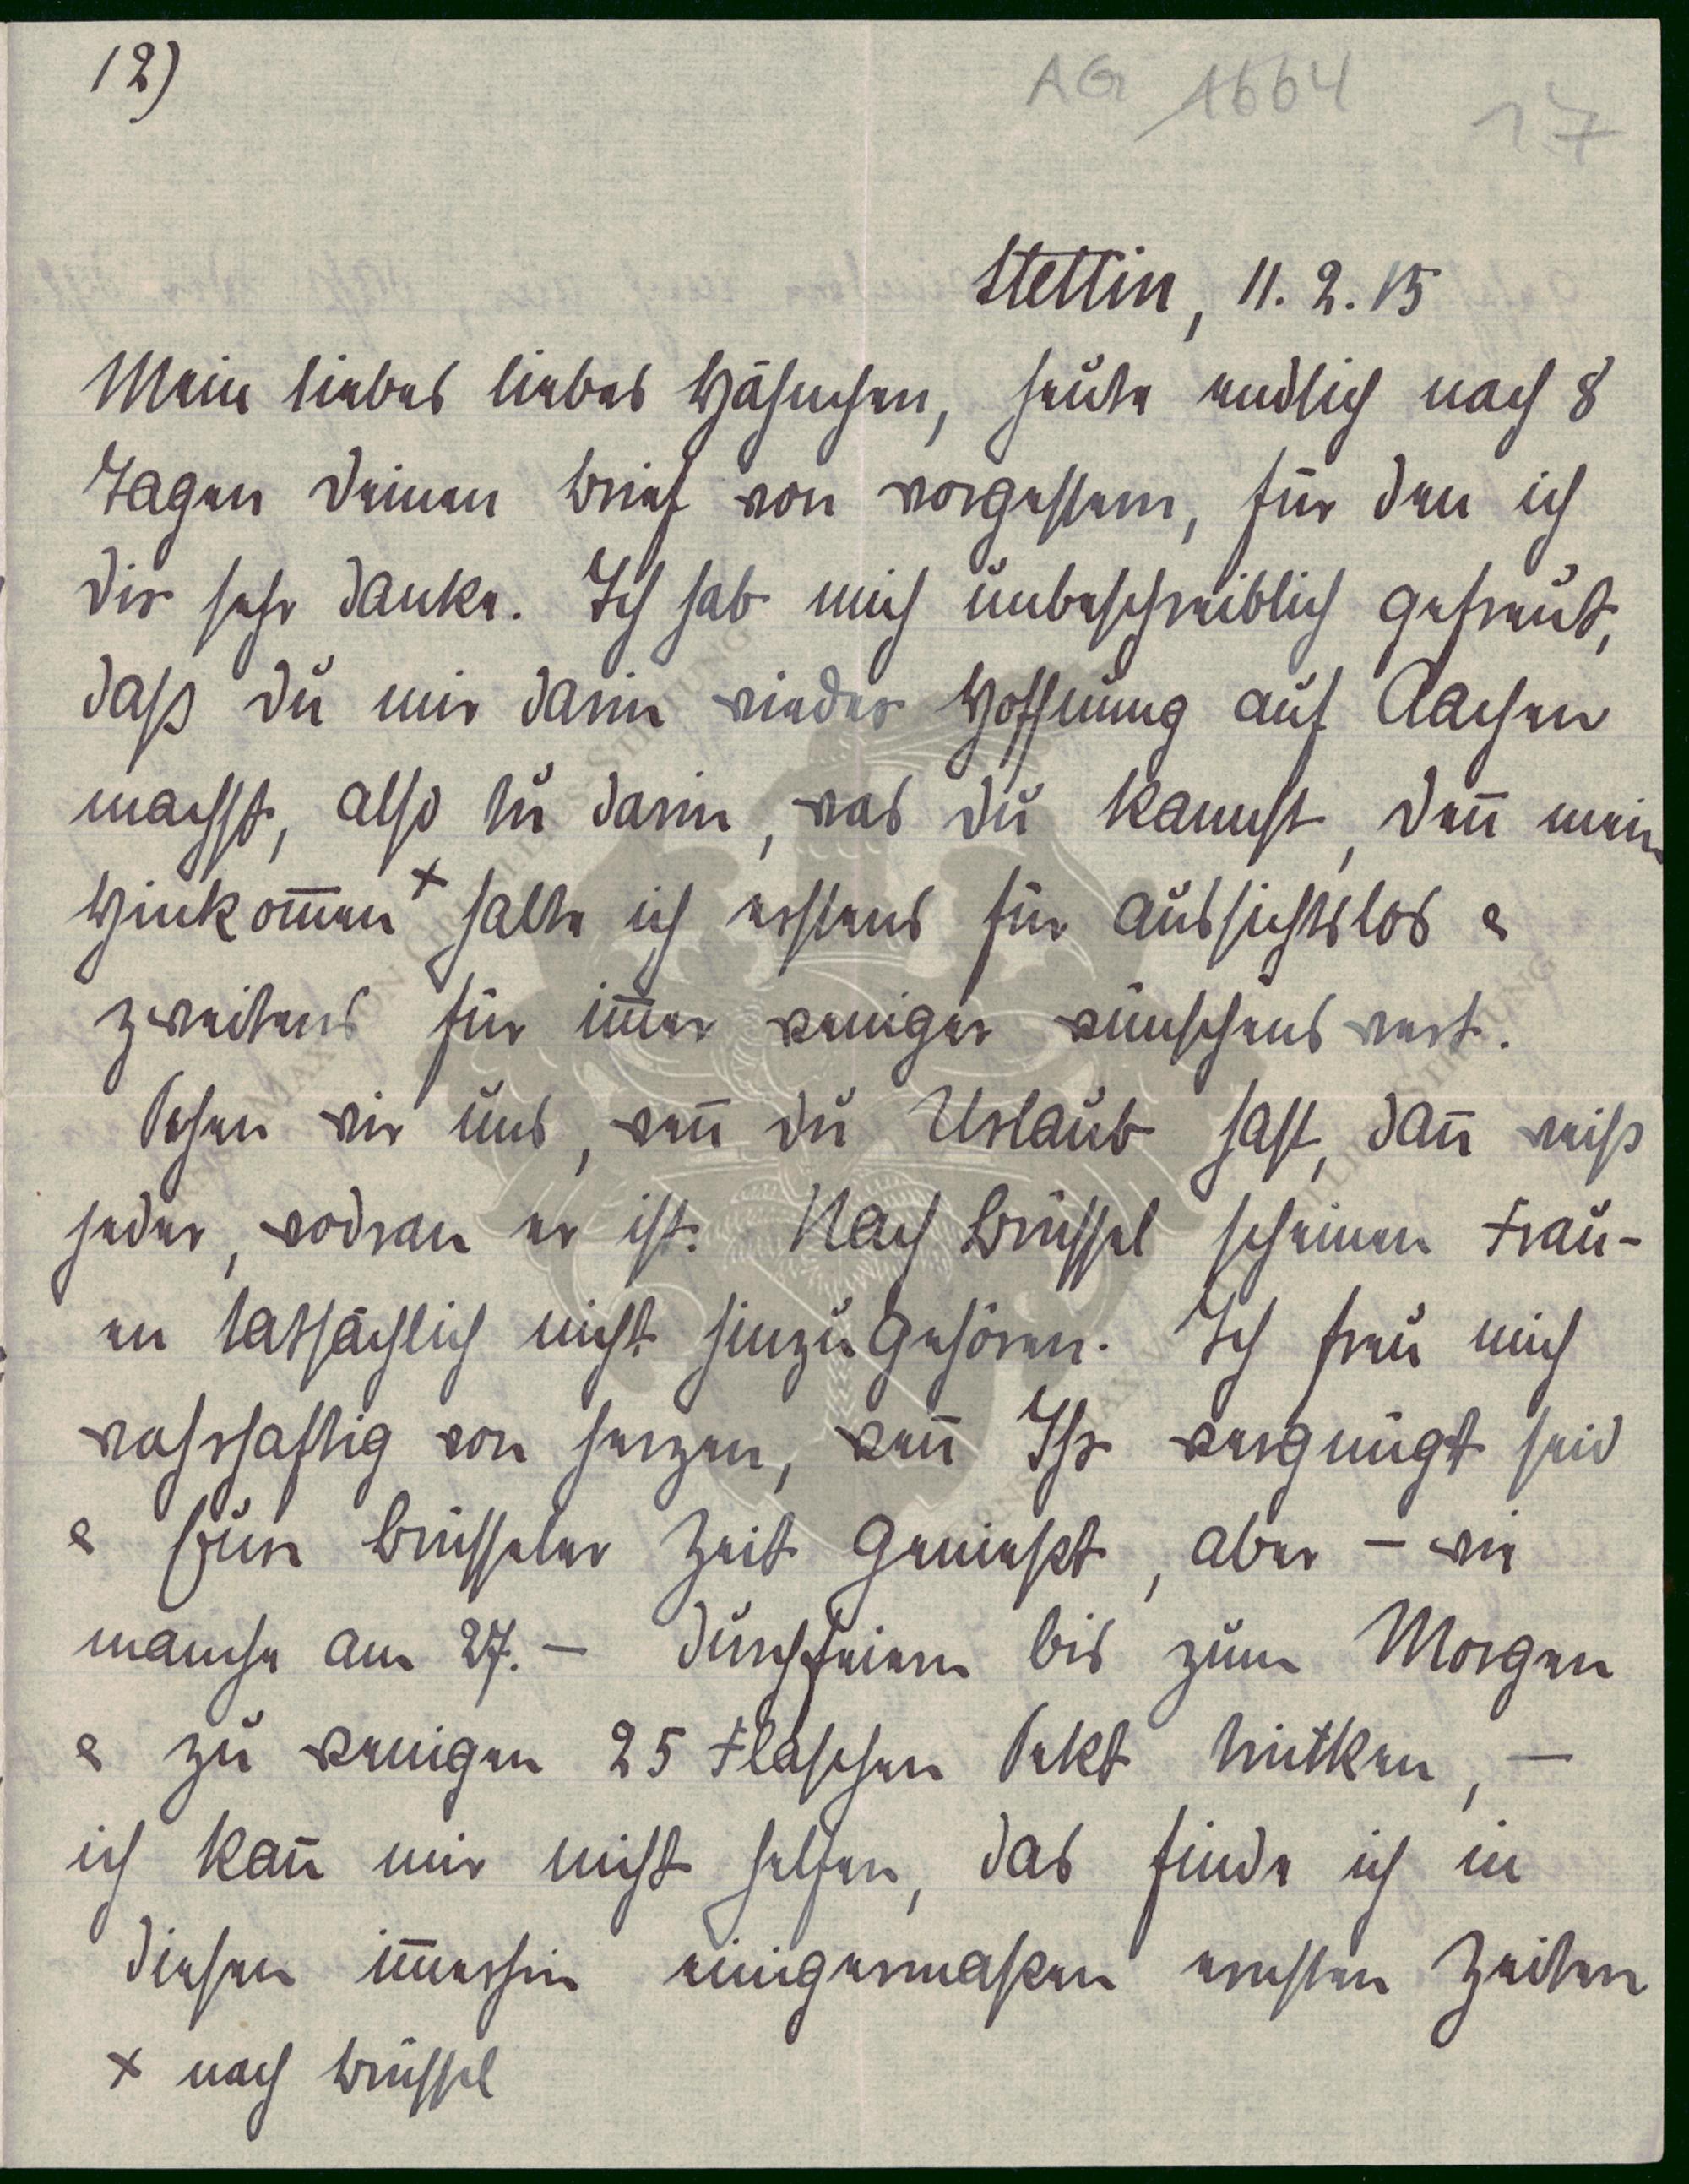 12)
AG 1664 17
Stettin, 11. 2. 15
Mein liebes liebes Häschen, heute endlich nach 8
Tagen Deinen Brief von vorgestern, für den ich
Dir sehr danke. Ich hab mich unbeschreiblich gefreut,
daß Du mir darin wieder Hoffnung auf Aachen
machst, also tu darin, was Du kannst, den̄ mein
Hinkom̄en x halte ich erstens für aussichtslos &
zweitens für im̄er weniger wünschenswert.
Sehen wir uns, wen̄ Du Urlaub hast, dan̄ weiß
jeder, wodran er ist. Nach Brüssel scheinen Frau-
en tatsächlich nicht hinzugehören. Ich freu mich
wahrhaftig von Herzen, wen̄ Ihr vergnügt seid
& Eure Brüsseler Zeit genießt, aber – wie
manche am 27. – durchfeiern bis zum Morgen
& zu wenigen 25 Flaschen Sekt trinken, –
ich kan̄ mir nicht helfen, das finde ich in
diesen im̄erhin einigermaßen ernsten Zeiten
x nach Brüssel